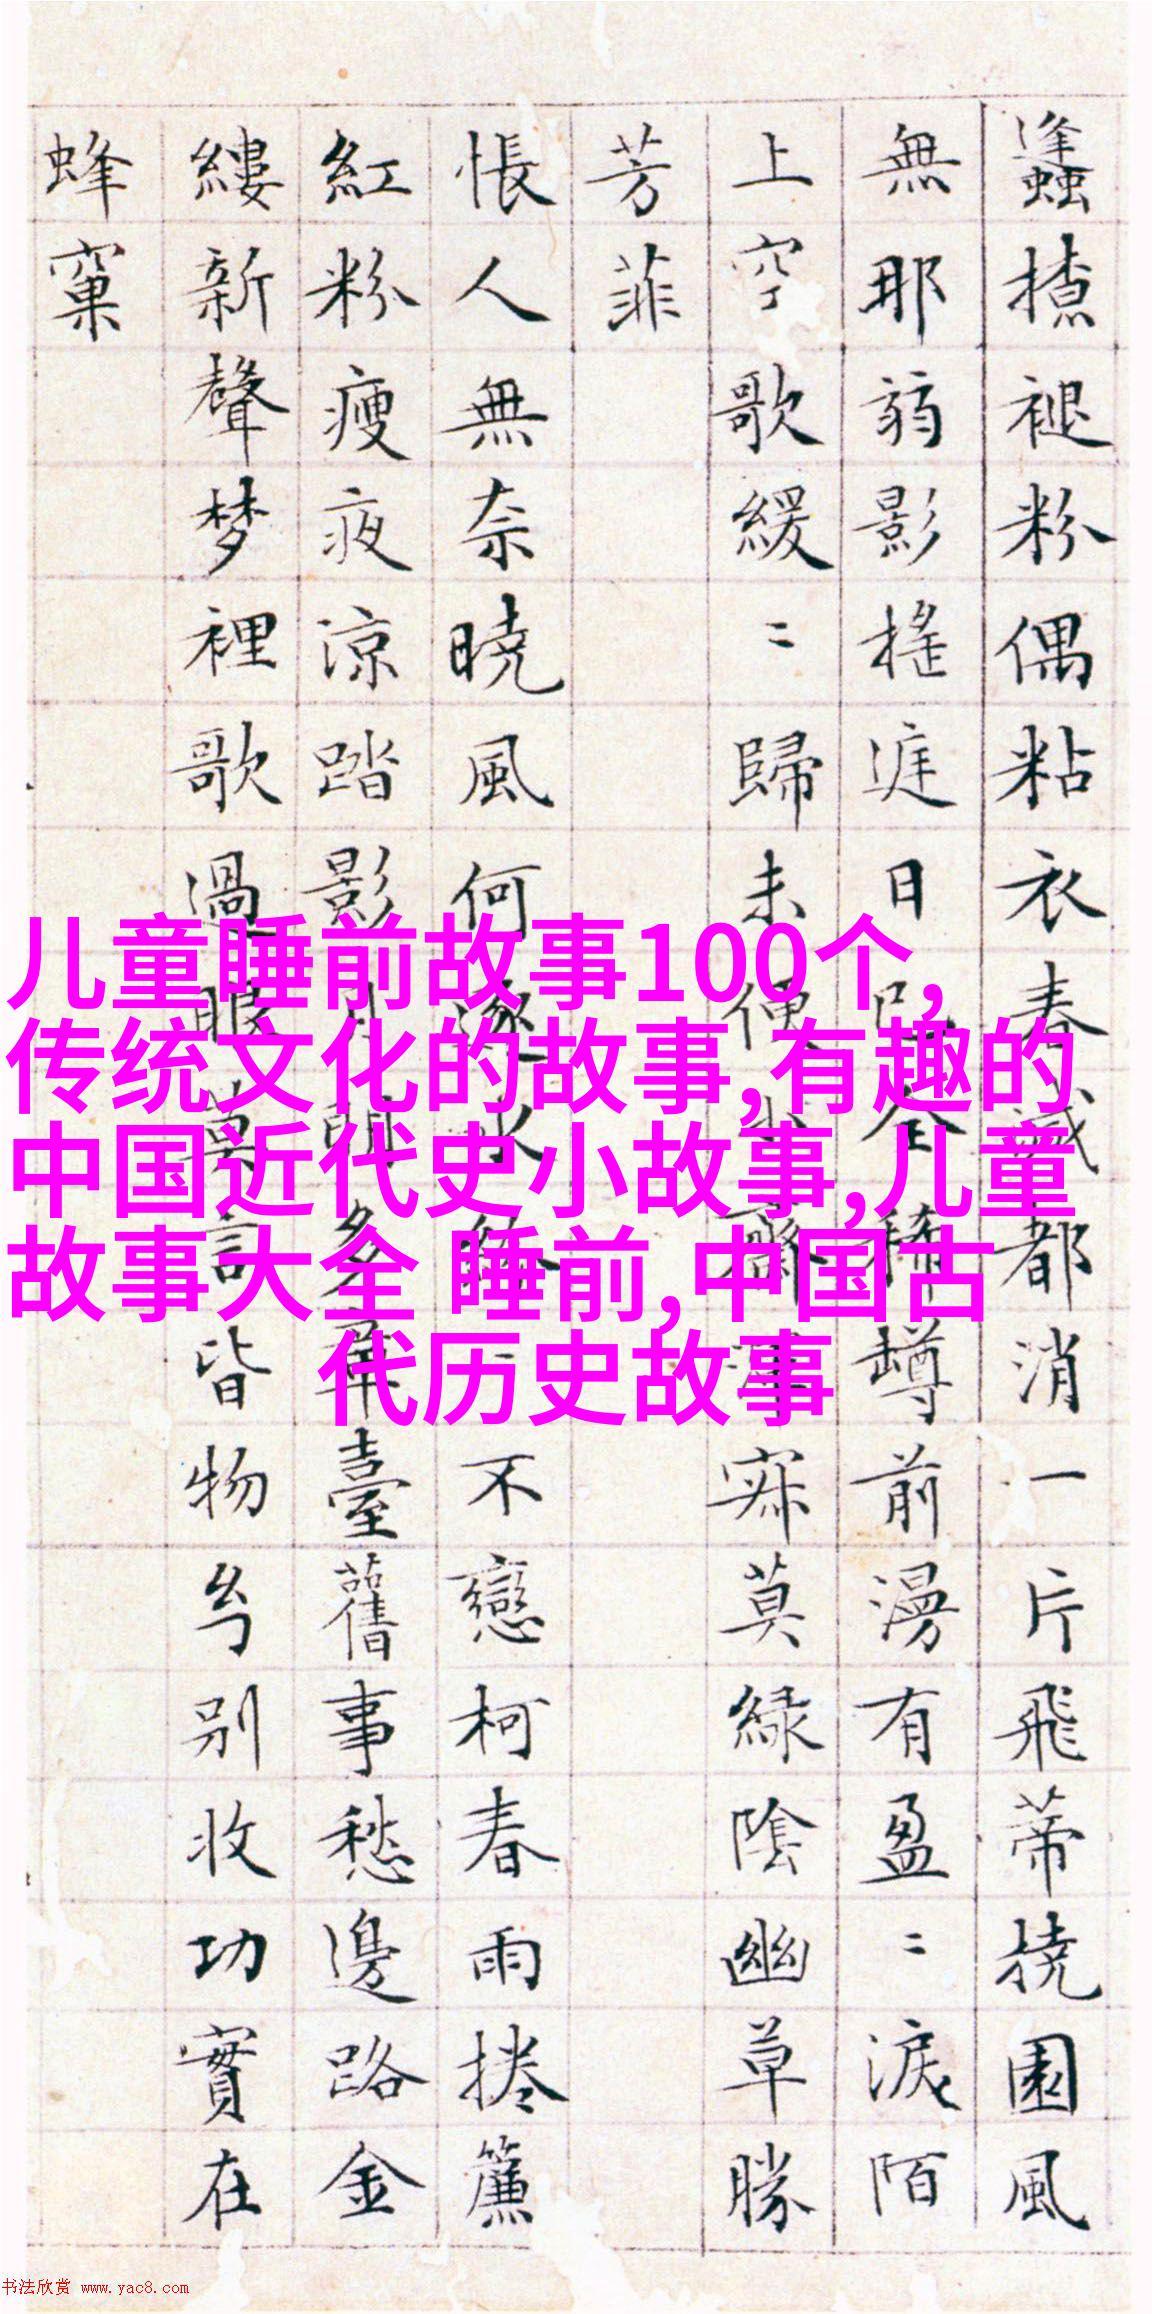 蠭撩褪粉偶粘衣春減都消一片飛蒂撓園風
無那弱影搖庭日全稀樽前漫有盈〻淚陌
上空歌緩〻歸未便小齋渾寂莫綠陰幽草勝
芳菲
悵人無奈曉風何逐水不戀柯春雨捲簾
紅粉瘦夜涼踏影月明多章臺舊事愁邊路金
縷新聲梦裡歌過眼莫言皆物別收功實在
蜂窠
儿童睡前故事100个,
传统文化的故事,有趣的
中国近代史小故事,儿童
故事大全 睡前,中国古
代历史故事
书法欣赏 www.yac8.com